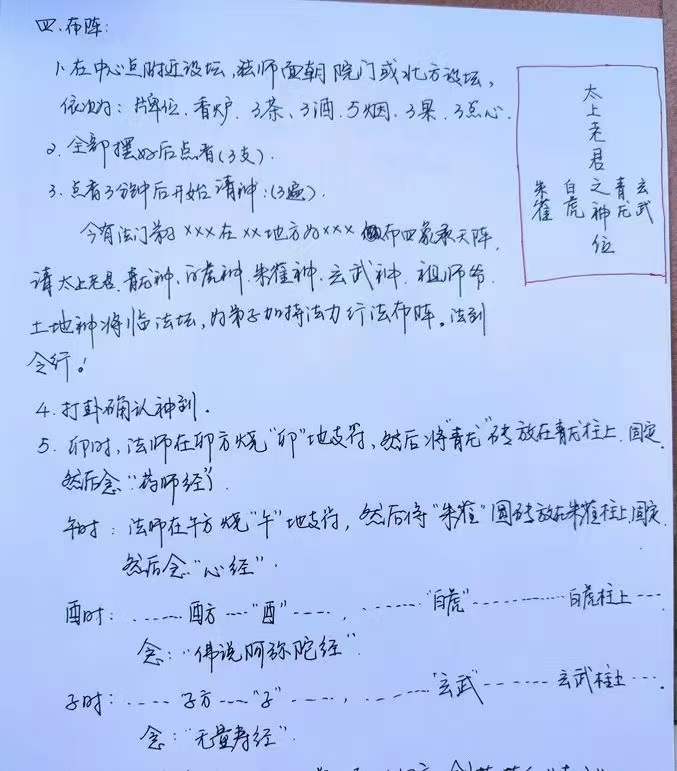 四.布阵:
1.在中心点附近设坛,法师面朝院门或北方设坛,
依次为:牌位.香炉.3茶、3酒.5烟.3果.3点心.
2.全部摆好后点香(3支).
3.点香3分钟后开始请神:(3遍).
今有法门弟子xxx在xx地方为xxx 布四象承天阵.
请太上老君.青龙神、白虎神.朱雀神.玄武神.祖师爷.
土地神将临法坛,为弟子加持法力行法布阵。法到
令行!
4.打卦确认神到.
5.卯时,法师在卯方烧"卯"地支符、然后将"青龙"砖放在青龙柱上.固定.
然后念"药师经".
午时:法师在午方烧"午"地支符,然后将"朱雀"圆砖放在朱雀柱上,固定.
然后念"心经".
酉时:……酉方…"酉"……,……"白虎"………白虎柱上…
念:"佛说阿弥陀经".
子时:……子方…"子"……,……"玄武"……玄武柱上….
念:"无量寿经".
太上老君之神位
朱雀
白虎
青龙
玄武